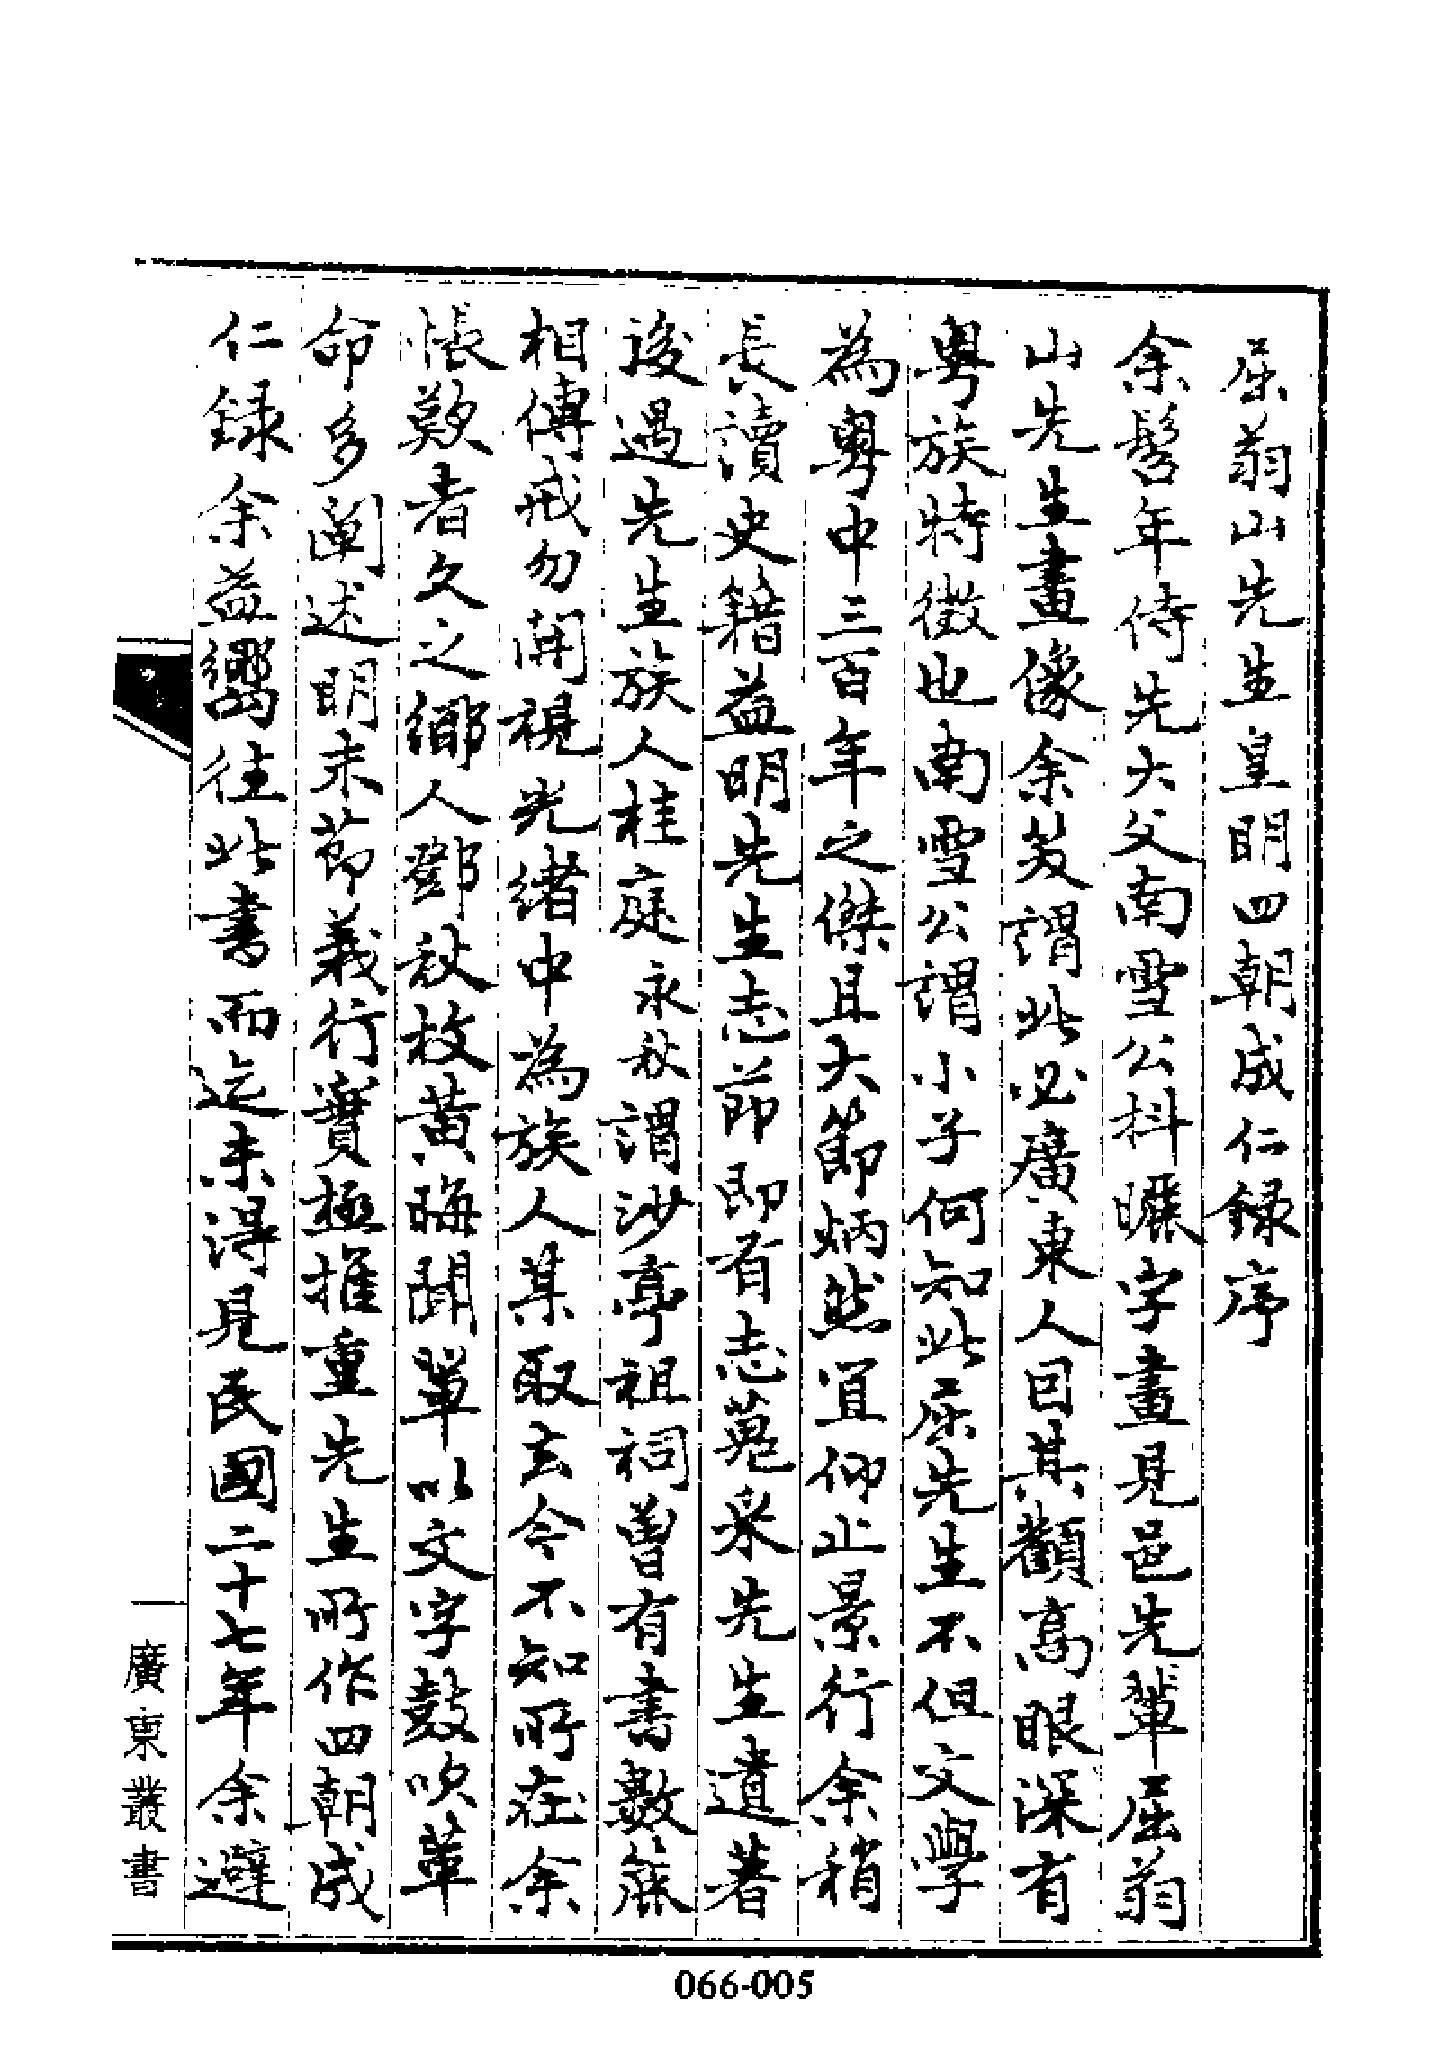 屈翁山先生皇明四朝成仁錄序
余髫年侍先大父南雪公抖曬字畫見邑先輩屈翁
山先生畫像余笑謂此必廣東人因其顴高眼深有
粵族特徵也南雪公謂小子何知此屈先生不但文學
為粵中三百年之傑且大節炳然宜仰止景行余稍
長讀史籍益明先生志節即有志蒐采先生遺著
後遇先生族人桂庭永秋謂沙亭祖祠曾有書數簏
相傳戒勿開視光緒中為族人某取去今不知所在余
悵歎者久之鄉人鄧秋枚黃晦聞輩以文字鼓吹革
命多闡述明末節義行實極推重先生所作四朝成
仁錄余益嚮往此書而迄未得見民國二十七年余避
廣東叢書
066-005